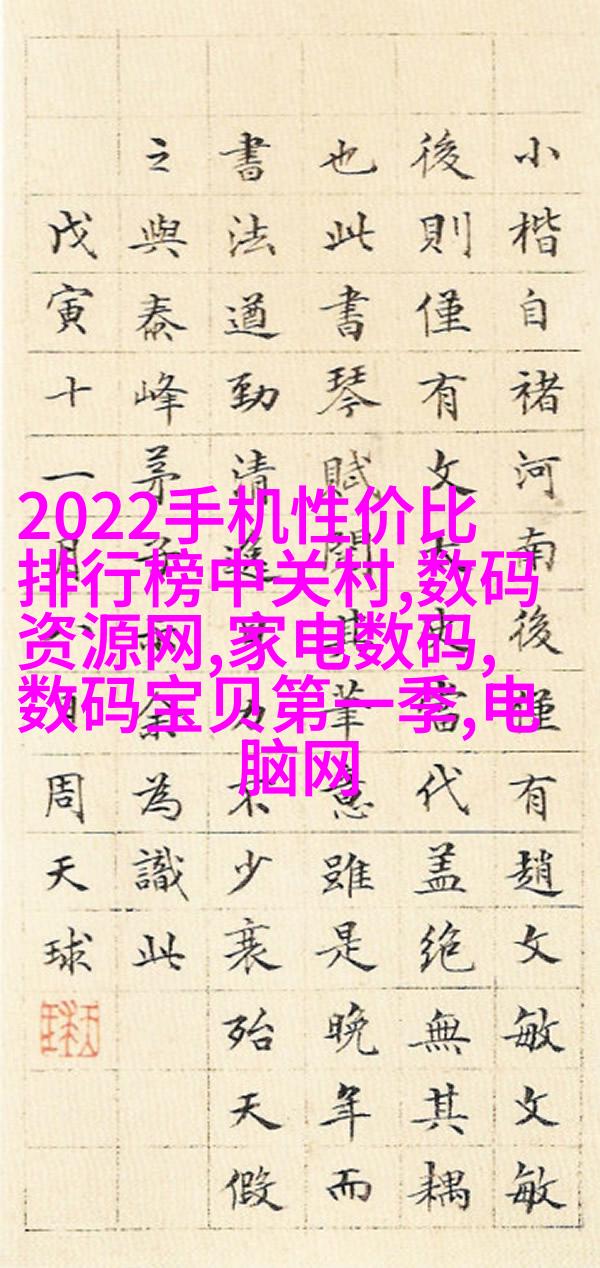 小楷自褚河南後僅有趙文敏文敏
後則僅有文史當代蓋絶無其耦
也此書琴賦其筆意雖是晚年而
書法遒勁清力不少衰殆天假
之與泰峰茅子余為識此
戊寅十一月日周天球
2022手机性价比
排行榜中关村,数码
资源网,家电数码,
数码宝贝第一季,电
脑网